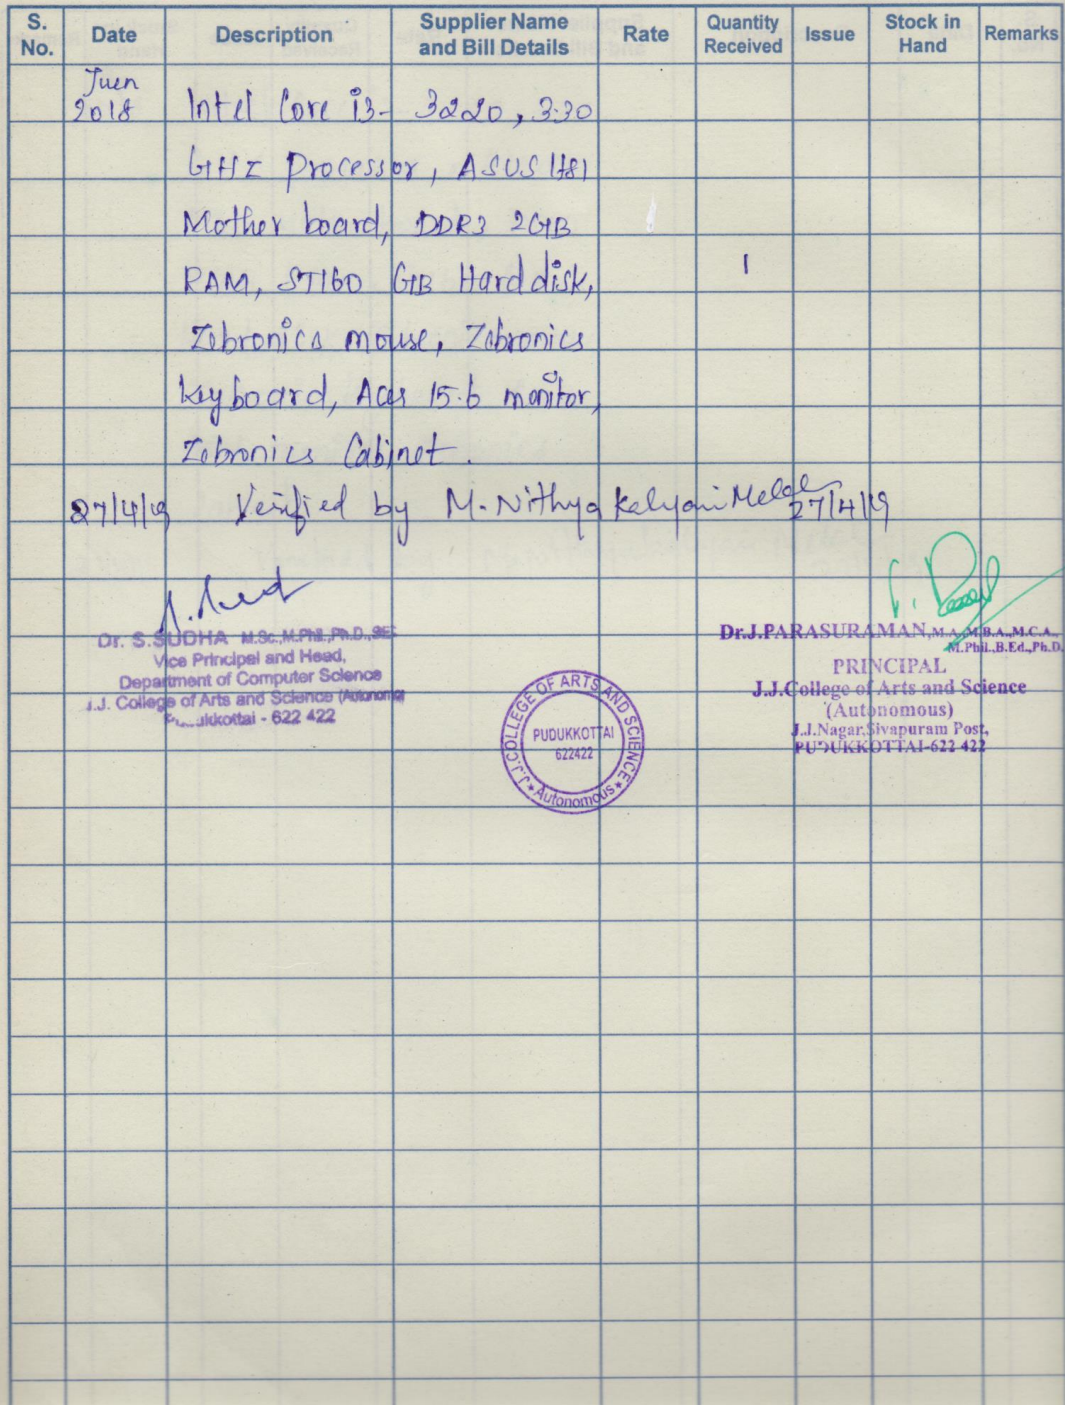 S. No. Date Description Supplier Name and Bill Details Rate Quantity Received Issue Stock in Hand Remarks
Juen
2018 Intel Core i3- 3220, 3.30
GHZ Processor, ASUS H81
Mother board, DDR3 2GB
RAM, ST160 GB Hard disk, 1
Zebronics mouse, Zebronics
Keyboard, Acer 15.6 monitor,
Zebronics Cabinet.
27/4/19 Verified by M. Nithya Kalyani 27/4/19
Dr. S.SUDHA M.Sc.,M.Phil.,Ph.D.,
Vice Principal and Head,
Department of Computer Science
J.J. College of Arts and Science (Autonomo
Pudukkottai - 622 422
J.J.COLLEGE OF ARTS AND SCIENCE
PUDUKKOTTAI
622422
* Autonomous *
Dr.J.PARASURAMAN,M.A.,M.B.A.,M.C.A.,
M.Phil.,B.Ed.,Ph.D.
PRINCIPAL
J.J.College of Arts and Science
(Autonomous)
J.J.Nagar,Sivapuram Post,
PUDUKKOTTAI-622 422